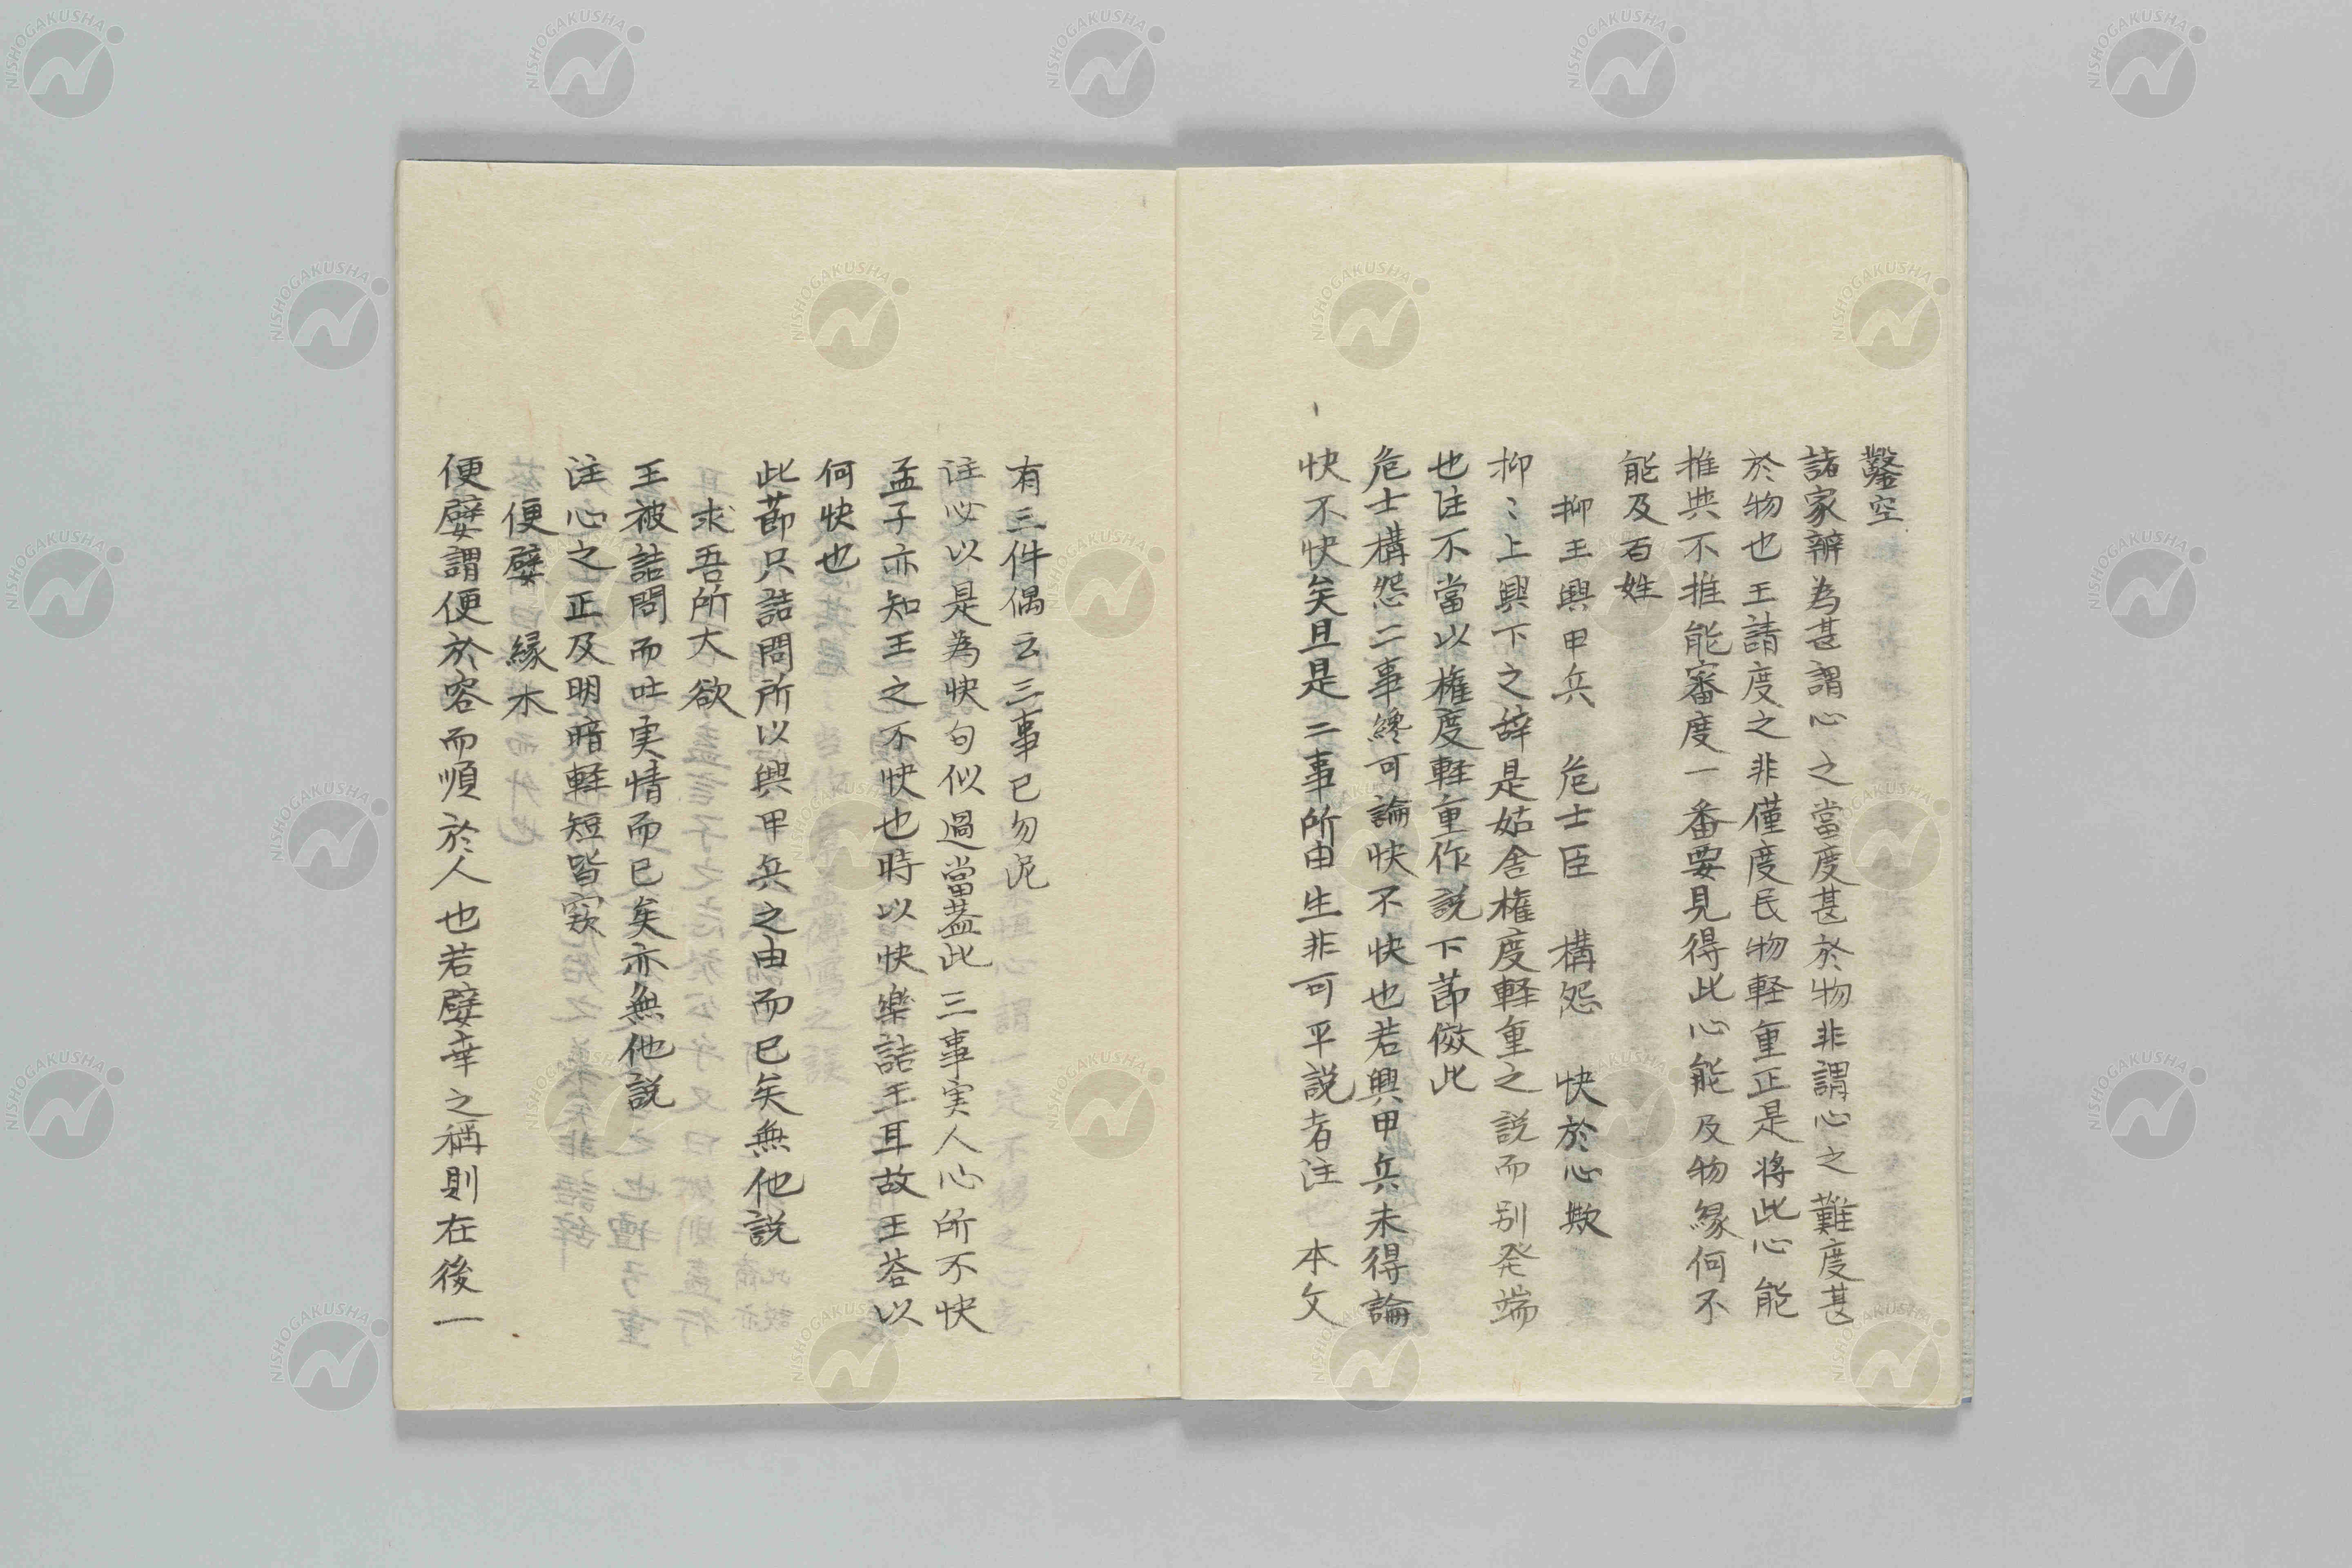 鑿空
諸家辨為甚謂心之當度甚於物非謂心之難度甚
於物也王請度之非僅度民物軽重正是将此心能
推与不推能審度一番要見得此心能及物縁何不
能及百姓
抑王興甲兵　危士臣　構怨　快於心欤
抑〻上興下之辞是姑舎権度軽重之説而別発端
也注不當以権度軽重作説下節倣此
危士構怨二事纔可論快不快也若興甲兵未得論
快不快矣且是二事所由生非可平説者注　本文
有三件偶云三事已勿泥
注必以是為快句似過當蓋此三事実人心所不快
孟子亦知王之不快也時以快樂詰王耳故王荅以
何快也
此節只詰問所以興甲兵之由而已矣無他説
求吾所大欲
王被詰問而吐実情而已矣亦無他説
注心之正及明暗軽短皆窾
便嬖　縁木
便嬖謂便於容而順於人也若嬖幸之稱則在後一